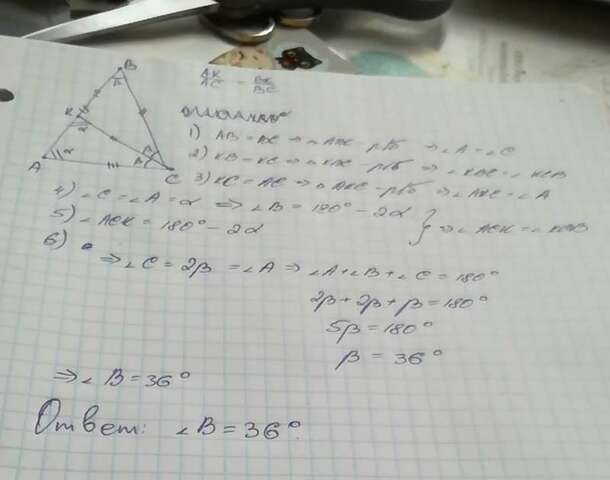 B
β
K
α
A
α
β
β
C
AK/AC = BK/BC
1) AB = BC ⇒ △ABC – р/б ⇒ ∠A = ∠C
2) KB = KC ⇒ △KBC – р/б ⇒ ∠KBC = ∠KCB
3) KC = AC ⇒ △AKC – р/б ⇒ ∠AKC = ∠A
4) ∠C = ∠A = α ⇒ ∠B = 180° – 2α
5) ∠ACK = 180° – 2α } ⇒ ∠ACK = ∠KCB
6)
⇒ ∠C = 2β = ∠A ⇒ ∠A + ∠B + ∠C = 180°
2β + 2β + β = 180°
5β = 180°
β = 36°
⇒ ∠B = 36°
Ответ: ∠B = 36°.